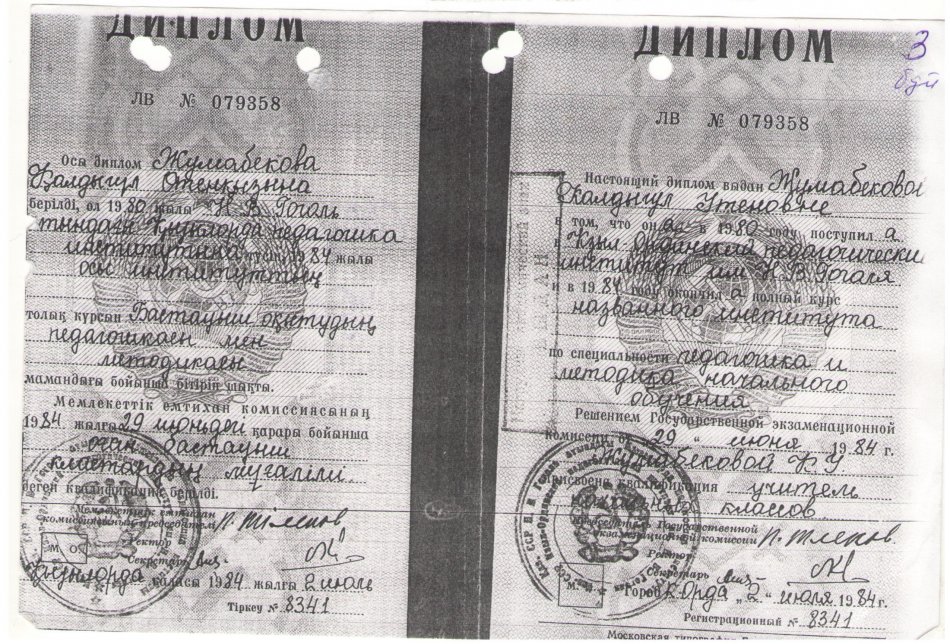 ДИПЛОМ
ЛВ № 079358
Осы диплом Жумабекова
берілді, ол 1980 жылы Н. В. Гоголь
атындағы Қызылорда педагогика
институтына түсіп 1984 жылы
осы институттың
толық курсын Бастауыш оқытудың
педагогикасы мен
методикасы
мамандығы бойынша бітіріп шықты.
Мемлекеттік емтихан комиссиясының
1984 жылғы 29 июньдегі қарары бойынша
оған бастауыш
кластардың мұғалімі
деген квалификация берілді.
Мемлекеттік емтихан
комиссиясының председателі
Ректор
Секретарь
М. О.
Қызылорда қаласы 1984 жылғы 2 июль
Тіркеу № 8341
ДИПЛОМ
3
ЛВ № 079358
Настоящий диплом выдан Жумабековой
Калдыгул Утеновне
в том, что она в 1980 году поступила
в Кзыл-Ординский педагогический
институт им Н В Гоголя
и в 1984 году окончила полный курс
названного института
по специальности педагогика и
методика начального
обучения
Решением Государственной экзаменационной
комиссии от 29 „ июня 1984 г.
Жумабековой К У
присвоена квалификация учитель
начальных классов
Председатель Государственной
экзаменационной комиссии
Ректор
Секретарь
М.
Город К-Орда „2“ июля 1984г.
Регистрационный № 8341